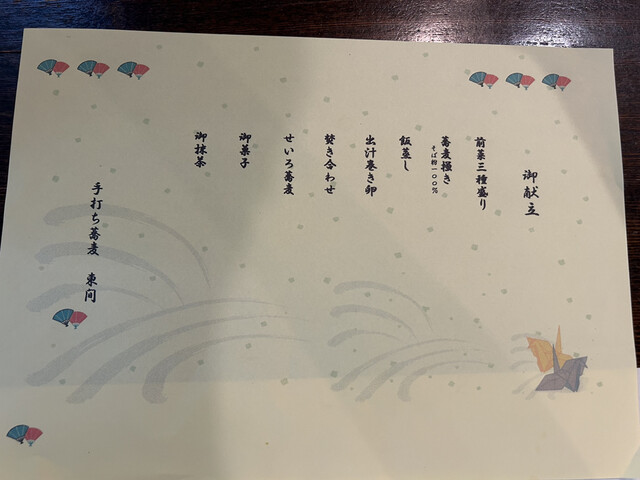 御献立
前菜三種盛り
蕎麦掻き
そば粉一〇〇%
飯蒸し
出汁巻き卵
焚き合わせ
せいろ蕎麦
御菓子
御抹茶
手打ち蕎麦 東间